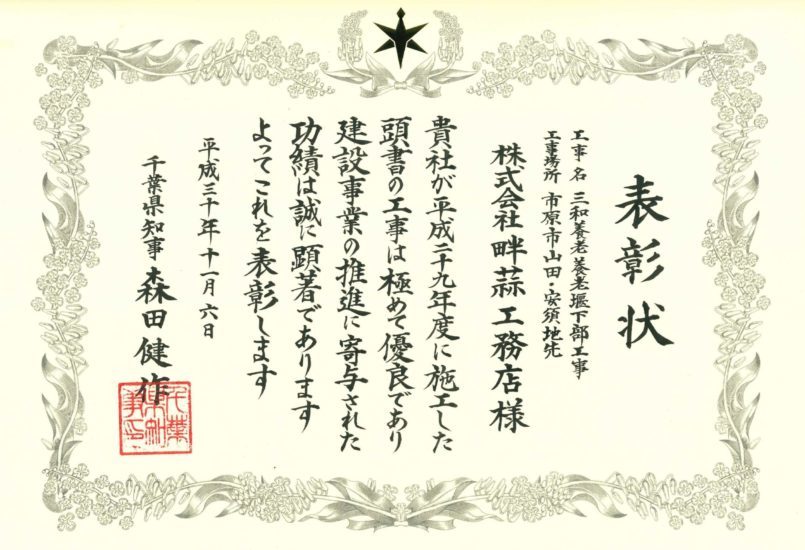 表彰状
工事名 三和養老養老堰下部工事
工事場所 市原市山田・安須地先
株式会社畔蒜工務店様
貴社が平成二十九年度に施工した
頭書の工事は極めて優良であり
建設事業の推進に寄与された
功績は誠に顕著であります
よってこれを表彰します
平成三十年十一月六日
千葉県知事 森田健作